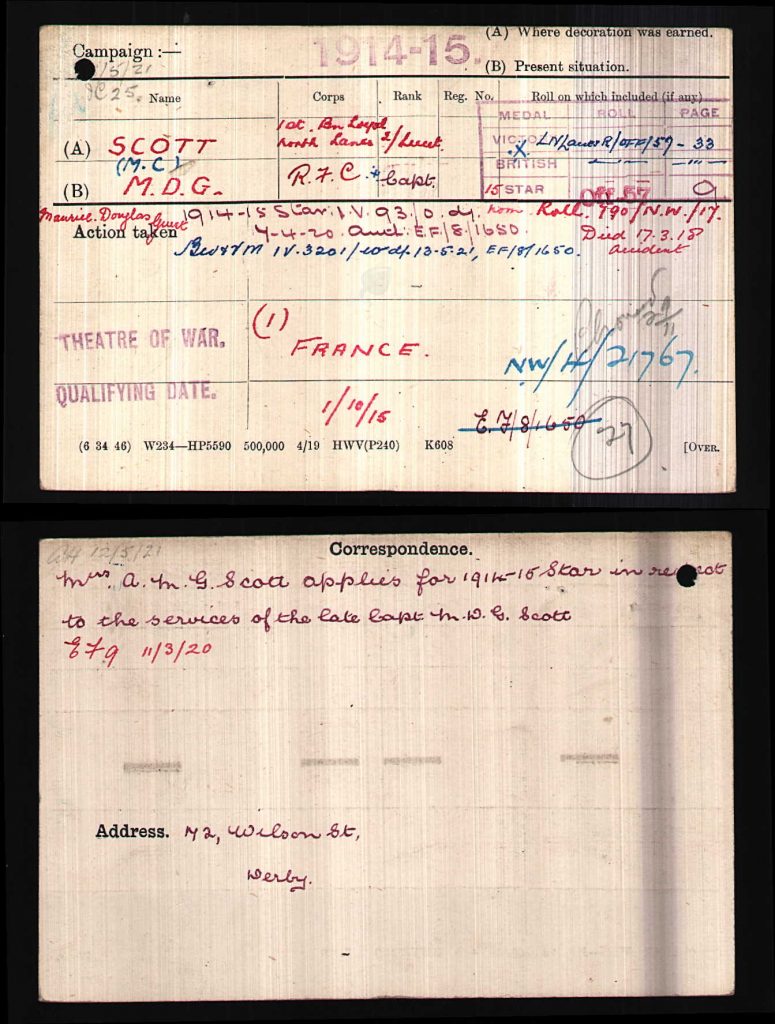 (A) Where decoration was earned.
Campaign :—
1914-15.
(B) Present situation.
/5/21
25.
Name Corps Rank Reg. No. Roll on which included (if any)
MEDAL ROLL PAGE
(A) SCOTT 1st. Bn Loyal North Lancs 2/Lieut. VICTO X LNLancsR/OFF/57 - 33
(M.C) BRITISH — " — " — - "
(B) M.D.G. R.F.C. * Capt. 15 STAR Off 57 9
Maurice Douglas
Action taken
1914-15 Star I.V. 93/0. dy. nom. Roll. 790/N.W./17.
7-4-20. Auct. E.F./8/1650. Died 17.3.18
accident
BWVM IV.3201/ 13-5-21, EF/8/1650.
THEATRE OF WAR. (1) FRANCE.
NW/H/21767.
QUALIFYING DATE. 1/10/15
E.F/8/1650
27
(6 34 46) W234—HP5590 500,000 4/19 HWV(P240) K608 [OVER.
12/5/21
Correspondence.
Mrs. A. M. G. Scott applies for 1914-15 Star in respect
to the services of the late Capt M. D. G. Scott
EF9 11/3/20
Address. 72, Wilson St,
Derby.